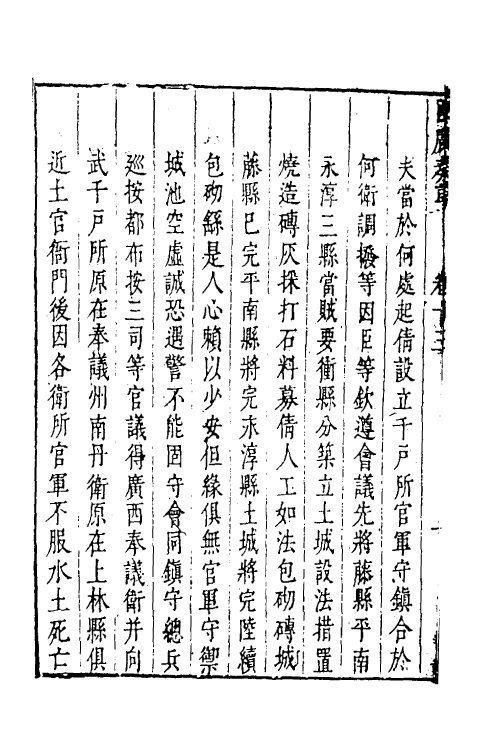 夫當於何處起倩設立千戶所官軍守鎮合於
何衛調撥等因臣等欽遵會議先將藤縣平南
永淳三縣當賊要衝縣分築立土城設法措置
燒造磚灰採打石料募倩人工如法包砌磚城
藤縣已完平南縣將完永淳縣土城將完陸續
包砌繇是人心賴以少安但緣俱無官軍守禦
城池空虛誠恐遇警不能固守會同鎮守總兵
巡按都布按三司等官議得廣西奉議衛并向
武千戶所原在奉議州南丹衛原在上林縣俱
近土官衙門後因各衛所官軍不服水土死亡